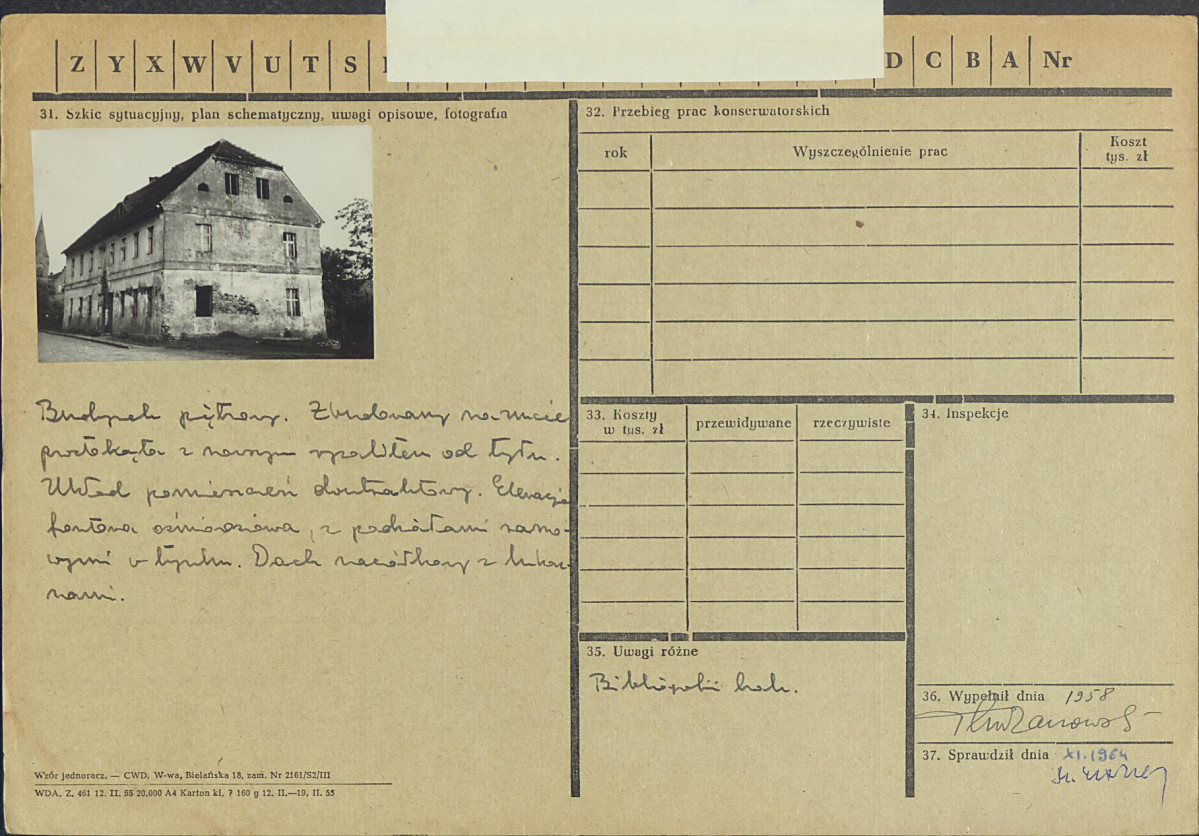 Z Y X W V U T S D C B A Nr
31. Szkic sytuacyjny, plan schematyczny, uwagi opisowe, fotografia
Budynek piętrowy. Zbudowany na rzucie
prostokąta z nowszym ryzalitem od tyłu.
Układ pomieszczeń dwutraktowy. Elewacja
frontowa ośmioosiowa, z podziałami ramo-
wymi w tynku. Dach naczółkowy z lukar-
nami.
Wzór jednoracz. — CWD, W-wa, Bielańska 18, zam. Nr 2161/S2/III
WDA. Z. 461 12. II. 55 20.000 A4 Karton kl. 7 160 g 12. II.—19. II. 55
32. Przebieg prac konserwatorskich
rok Wyszczególnienie prac Koszt
tys. zł
33. Koszty
w tys. zł przewidywane rzeczywiste
34. Inspekcje
35. Uwagi różne
Bibliografii brak.
36. Wypełnił dnia 1958
37. Sprawdził dnia XI.1964